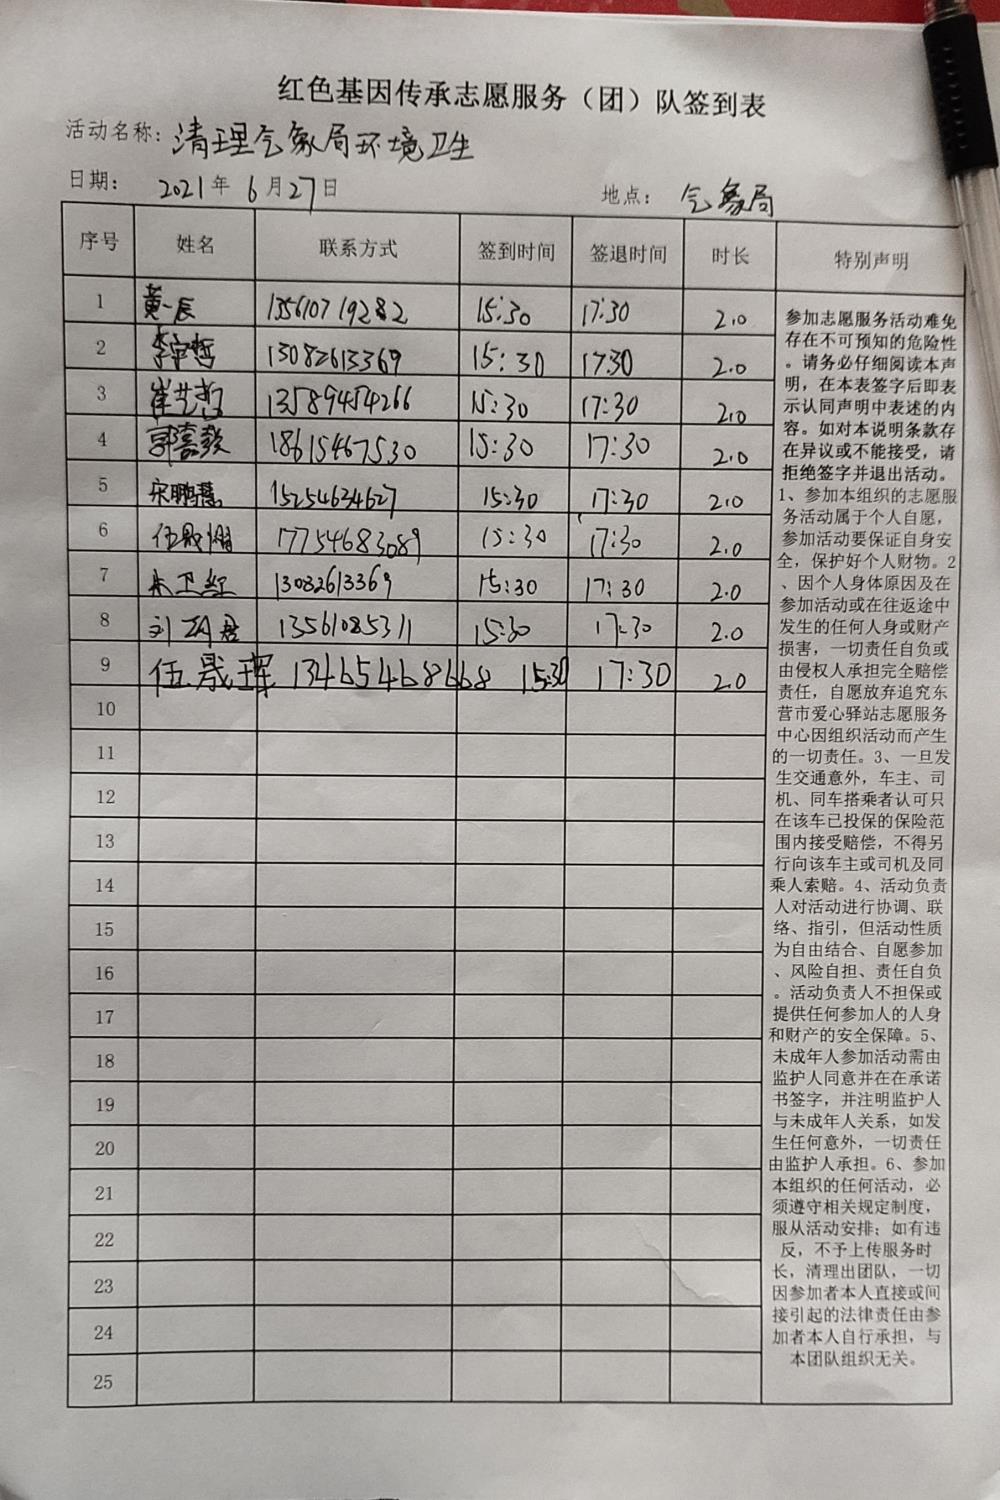 红色基因传承志愿服务（团）队签到表
活动名称：清理气象局环境卫生
日期： 2021年 6月27日 地点： 气象局
序号 姓名 联系方式 签到时间 签退时间 时长 特别声明
1 黄一辰 135610719282 15:30 17:30 2.0
2 李宇哲 13082613369 15:30 17:30 2.0
3 崔艺哲 13589454266 15:30 17:30 2.0
4 郭喜毅 18615467530 15:30 17:30 2.0
5 宋鹏慧 15254634627 15:30 17:30 2.0
6 伍晟熠 17754683089 15:30 17:30 2.0
7 朱卫红 13082613369 15:30 17:30 2.0
8 刘 君 13561085311 15:30 17:30 2.0
9 伍晟珲 13465468668 15:30 17:30 2.0
10
11
12
13
14
15
16
17
18
19
20
21
22
23
24
25
参加志愿服务活动难免
存在不可预知的危险性
。请务必仔细阅读本声
明，在本表签字后即表
示认同声明中表述的内
容。如对本说明条款存
在异议或不能接受，请
拒绝签字并退出活动。
1、参加本组织的志愿服
务活动属于个人自愿，
参加活动要保证自身安
全，保护好个人财物。2
、因个人身体原因及在
参加活动或在往返途中
发生的任何人身或财产
损害，一切责任自负或
由侵权人承担完全赔偿
责任，自愿放弃追究东
营市爱心驿站志愿服务
中心因组织活动而产生
的一切责任。3、一旦发
生交通意外，车主、司
机、同车搭乘者认可只
在该车已投保的保险范
围内接受赔偿，不得另
行向该车主或司机及同
乘人索赔。4、活动负责
人对活动进行协调、联
络、指引，但活动性质
为自由结合、自愿参加
、风险自担、责任自负
。活动负责人不担保或
提供任何参加人的人身
和财产的安全保障。5、
未成年人参加活动需由
监护人同意并在在承诺
书签字，并注明监护人
与未成年人关系，如发
生任何意外，一切责任
由监护人承担。6、参加
本组织的任何活动，必
须遵守相关规定制度，
服从活动安排；如有违
反，不予上传服务时
长，清理出团队，一切
因参加者本人直接或间
接引起的法律责任由参
加者本人自行承担，与
本团队组织无关。